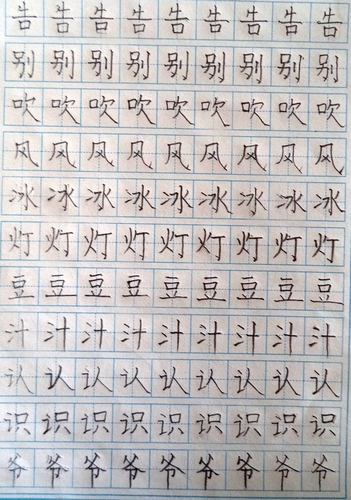 告告告告告告告告告
别别别别别别别别别
吹吹吹吹吹吹吹吹吹
风风风风风风风风风
冰冰冰冰冰冰冰冰冰
灯灯灯灯灯灯灯灯灯
豆豆豆豆豆豆豆豆豆
汁汁汁汁汁汁汁汁汁
认认认认认认认认认
识识识识识识识识识
爷爷爷爷爷爷爷爷爷